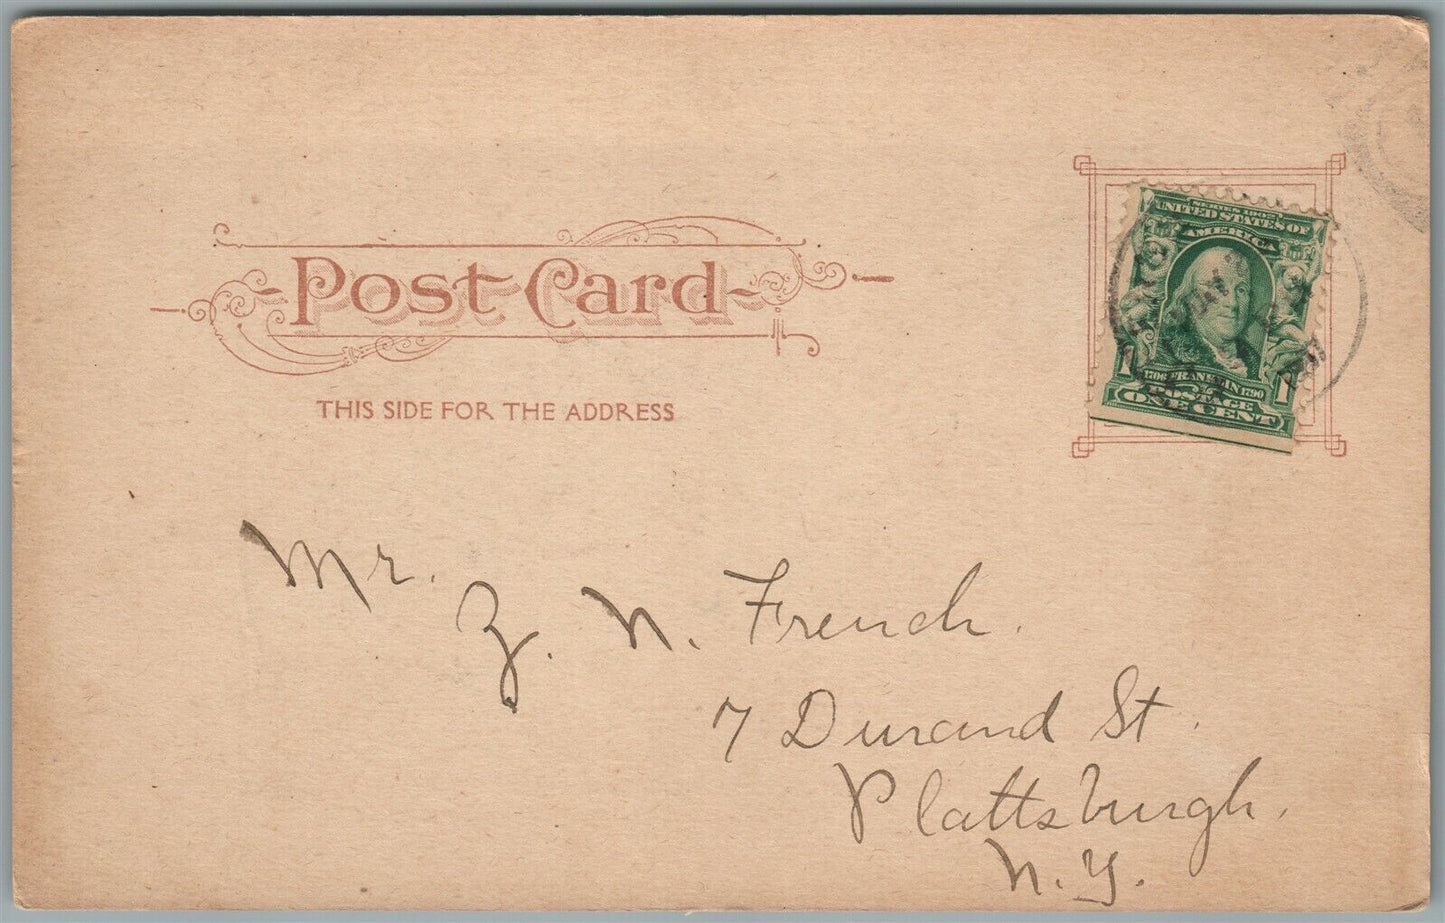 Post Card
THIS SIDE FOR THE ADDRESS
SERIES 1902
UNITED STATES OF
AMERICA
1706 FRANKLIN 1790
POSTAGE
1 ONE CENT 1
Mr. Z. N. French.
7 Durand St.
Plattsburgh.
N. Y.